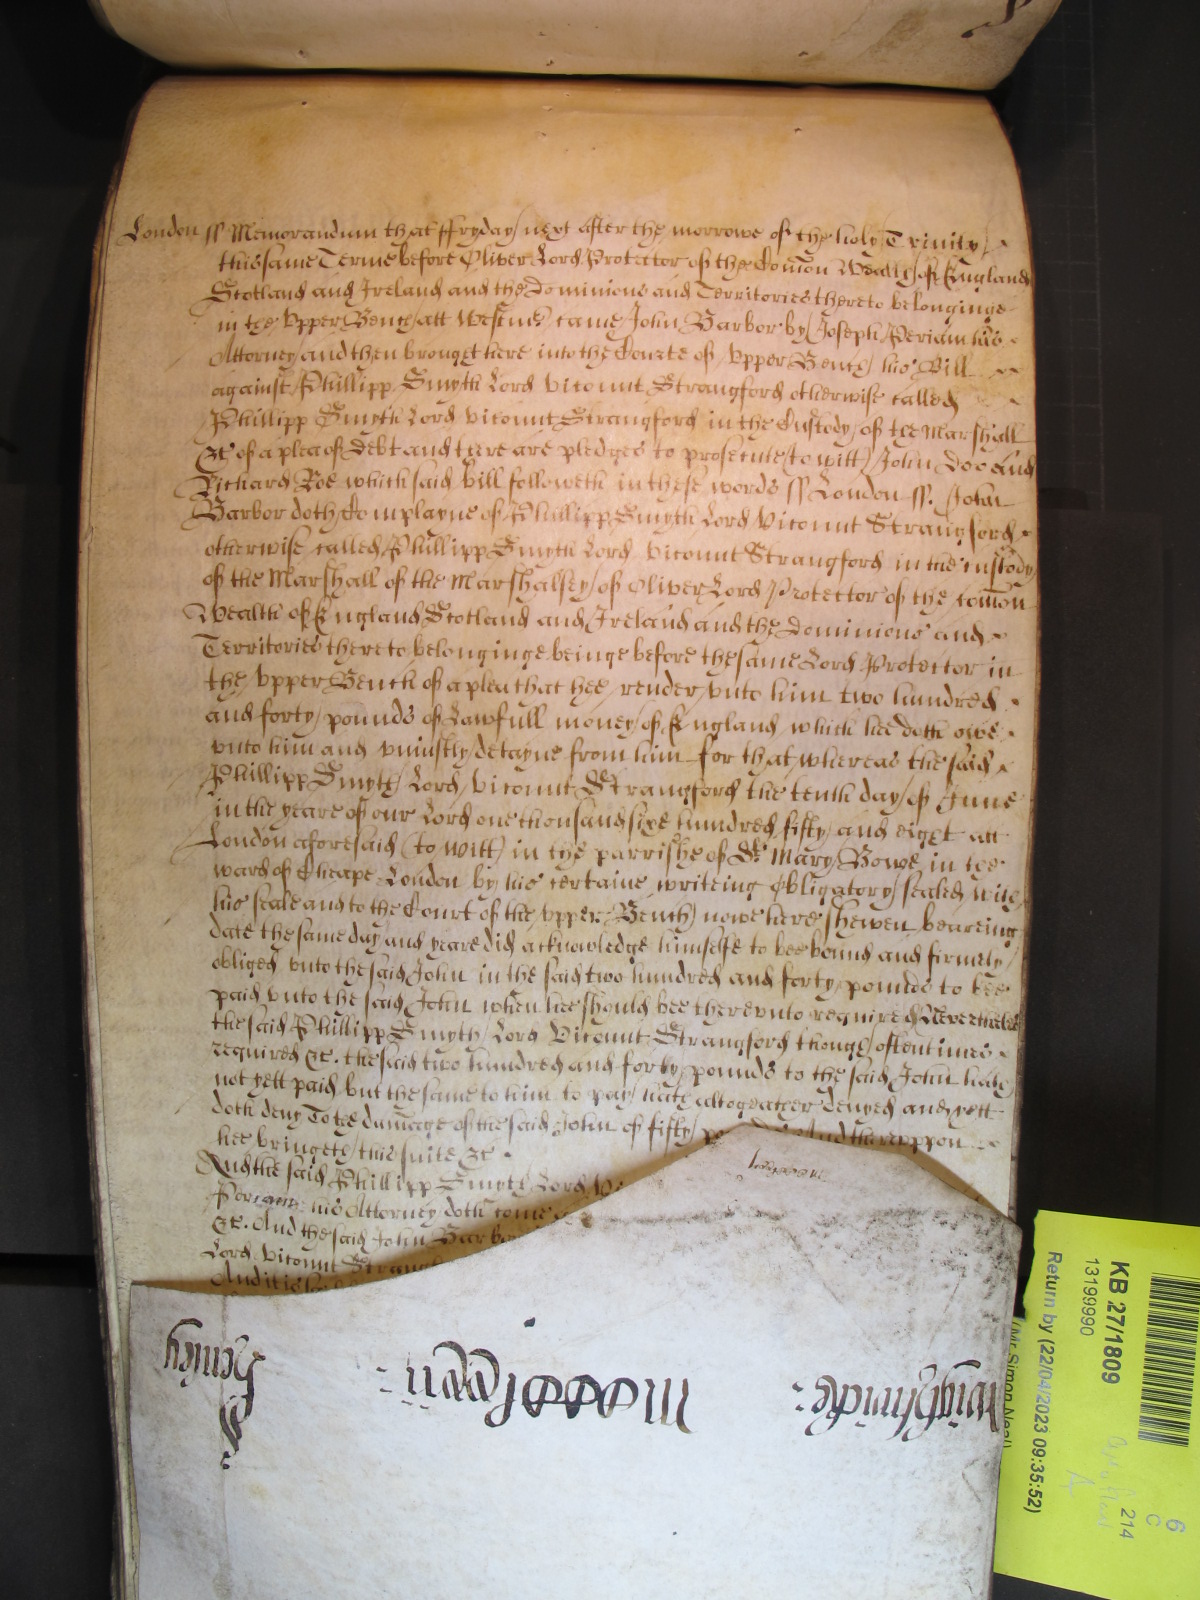 London ss Memorandum that ffryday next after the morrowe of the holy Trinity
this same Terme before Oliver Lord Protector of the Com̄on Wealth of England
Scotland and Ireland and the Dominions and Territories thereto belonginge
in the Vpper Bench att Westmr came John Barbor by Joseph Periam his
Attorney and then brought here into the Courte of Vpper Bench his Bill
against Phillipp Smyth Lord Vicount Strangford otherwise called
Phillipp Smyth Lord Vicount Strangford in the Custody of the Marshall
&c of a plea of Debt and there are pledges to prosecute to witt John Doo and
Richard Roe which said Bill followeth in these words ss London ss. John
Barbor doth Complayne of Phillipp Smyth Lord Vicount Strangford
otherwise called Phillipp Smyth Lord Vicount Strangford in the custody
of the Marshall of the Marshalsey of Oliver Lord Protector of the com̄on
Wealth of England Scotland and Ireland and the Dominions and
Territories thereto belonginge beinge before the same Lord Protector in
the Vpper Bench of a plea that hee render vnto him two hundred
and forty pounds of Lawfull money of England which hee doth owe
vnto him and vniustly detayne from him for that whereas the said
Phillipp Smyth Lord Vicount Strangford the tenth day of June
in the yeare of our Lord one thousand sixe hundred fifty and eight att
London aforesaid (to witt) in the parrishe of St Mary Bowe in the
ward of Cheape London by his certaine writeing obligatory sealed with
his seale and to the Court of the Vpper Bench nowe here shewen beareing
date the same day and yeare did acknowledge himselfe to bee bound and firmely
obliged vnto the said John in the said two hundred and forty pounds to bee
paid vnto the said John when hee should bee therevnto required Neverthelesse
the said Phillipp Smyth Lord Vicount Strangford though oftentimes
required &c. the said two hundred and forty pounds to the said John hath
not yett paid but the same to him to pay hath altogeather denyed and yett
doth deny To the damage of the said John of fifty And therevppon
hee bringeth this suite &c
And the said Phillipp Smyth Lord
Periam his Attorney doth come
&c. And the said John Barbor
Lord Vicount Strang
And it is
Henley
KB 27/1809
13199990
Return by (22/04/2023 09:35:52)
(Mr Simon Neal)
6
C
214